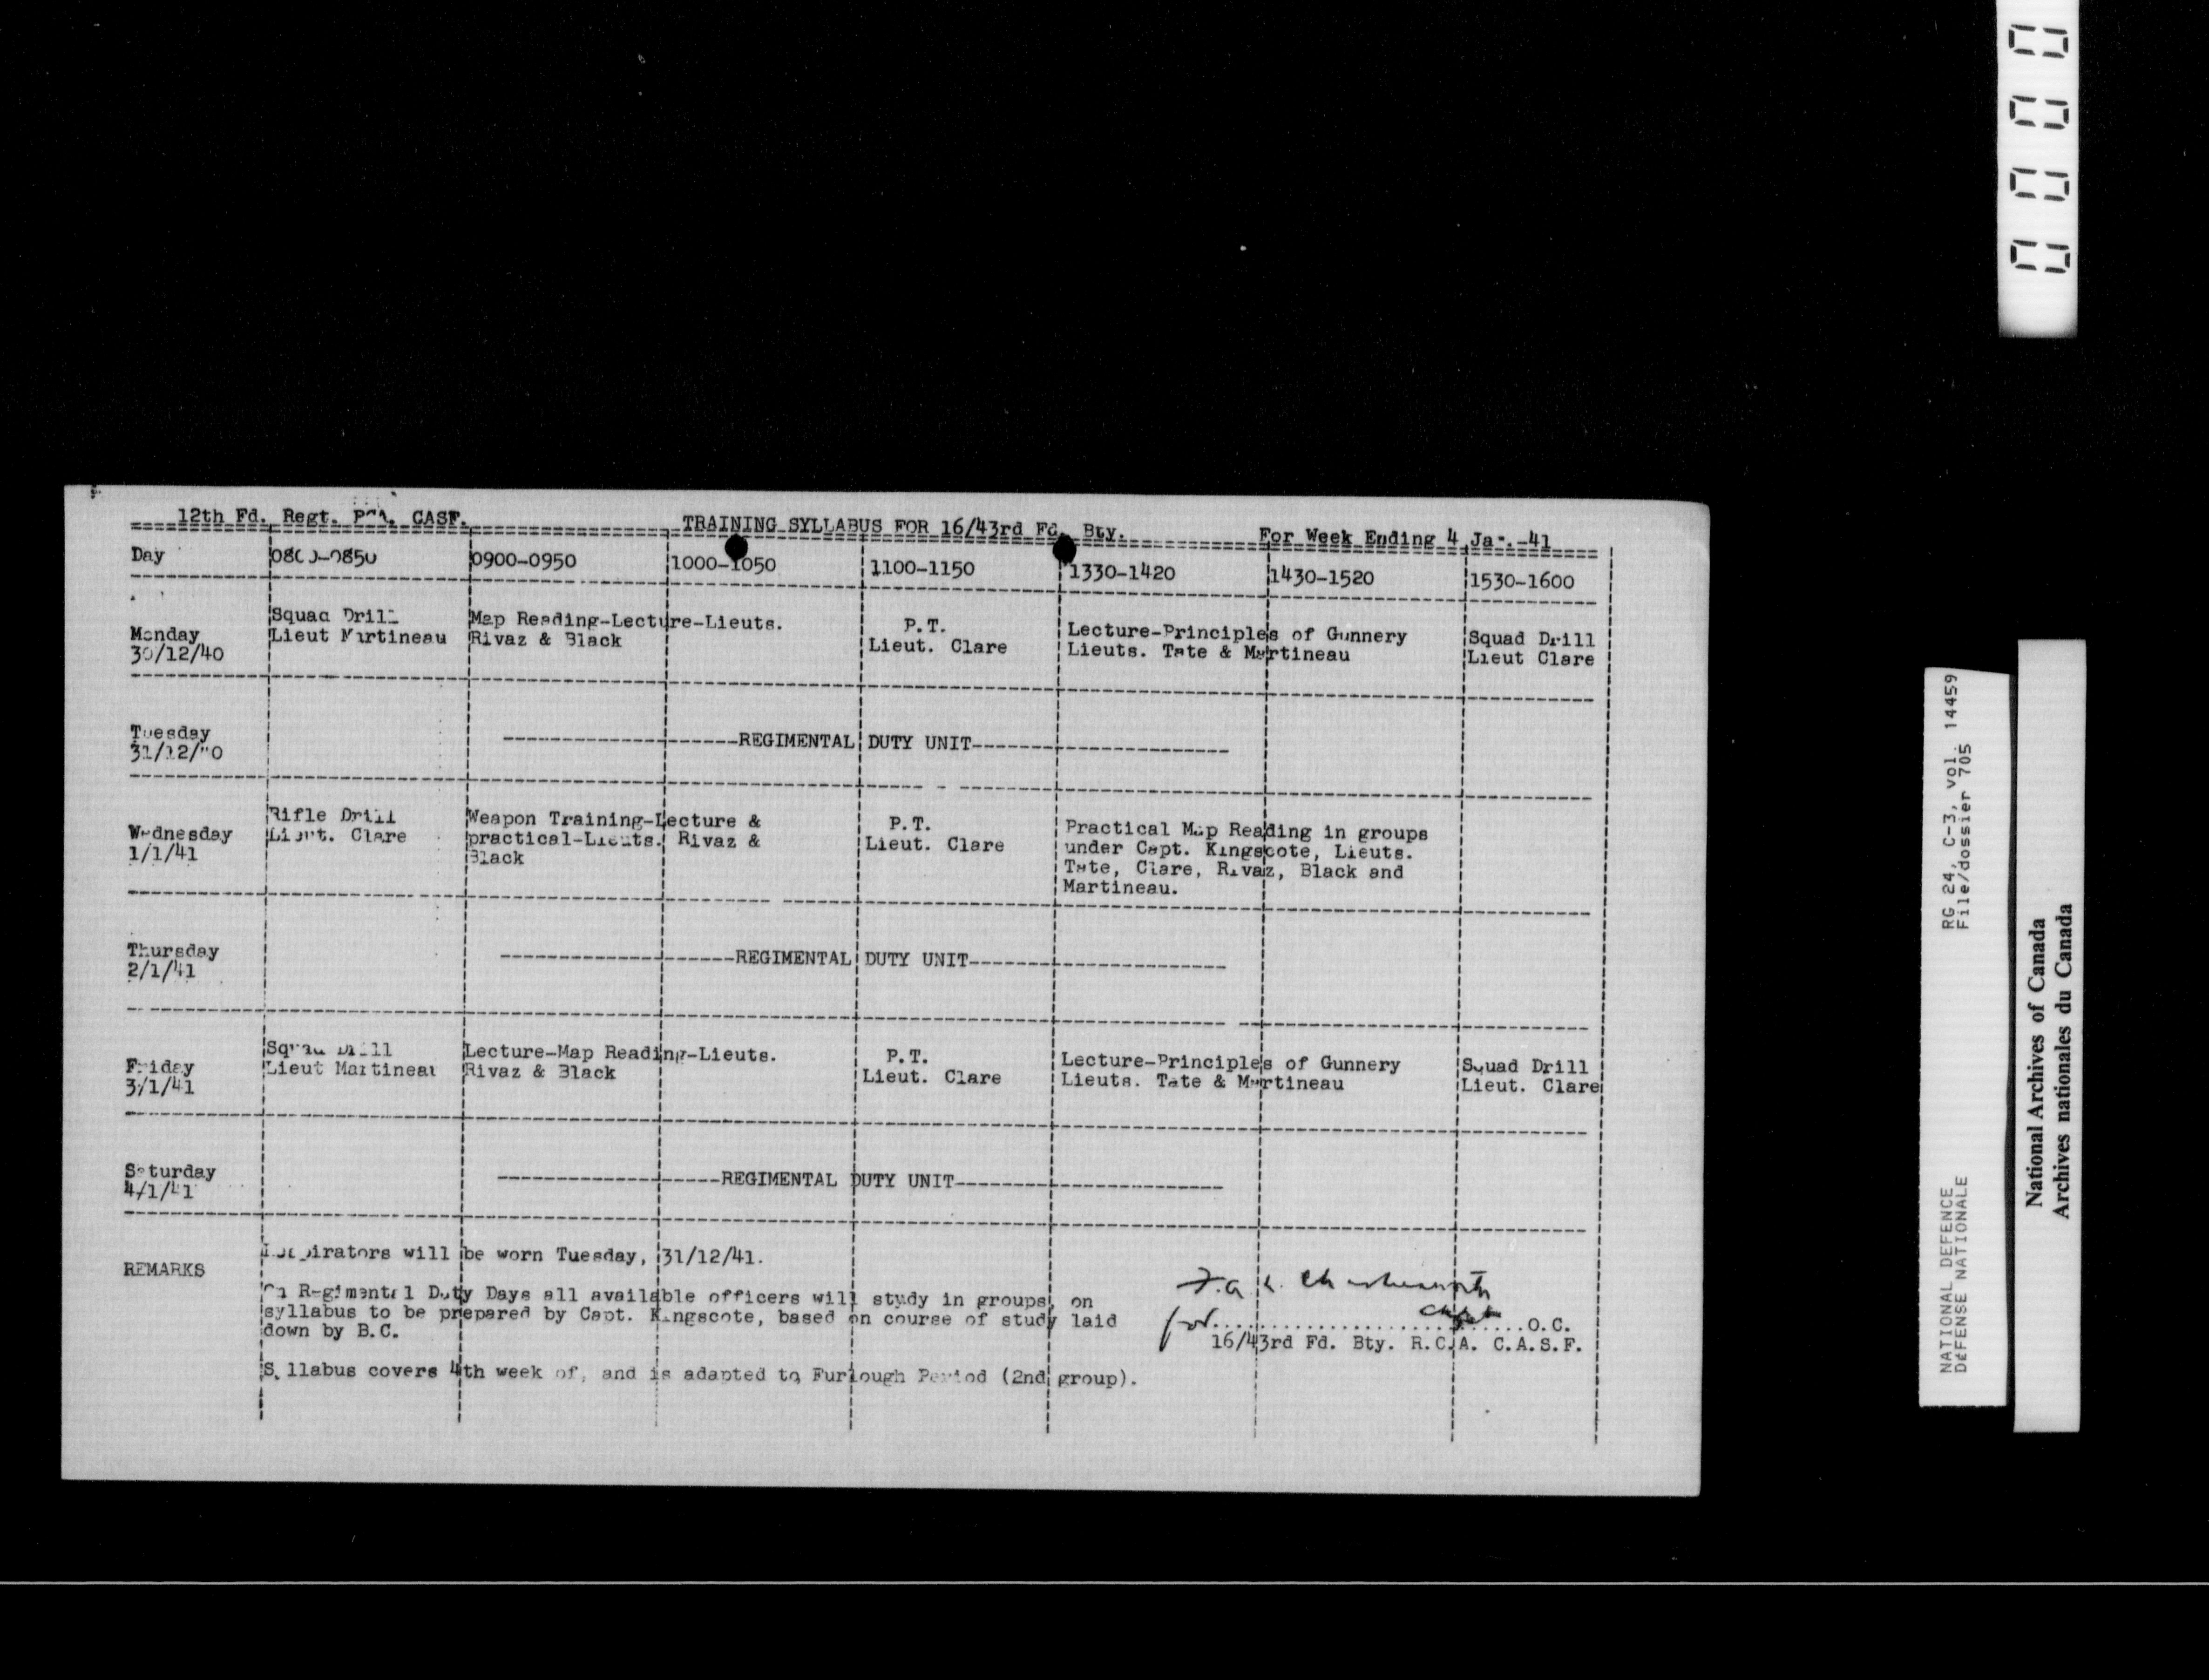 12th Fd. Regt. RCA. CASF. TRAINING SYLLABUS FOR 16/43rd Fd. Bty. For Week Ending 4 Jan.-41
Day 0800-0850 0900-0950 1000-1050 1100-1150 1330-1420 1430-1520 1530-1600
Monday
30/12/40
Squad Drill
Lieut Martineau
Map Reading-Lecture-Lieuts.
Rivaz & Black
P.T.
Lieut. Clare
Lecture-Principles of Gunnery
Lieuts. Tate & Martineau
Squad Drill
Lieut Clare
Tuesday
31/12/40
REGIMENTAL DUTY UNIT
Wednesday
1/1/41
Rifle Drill
Lieut. Clare
Weapon Training-Lecture &
practical-Lieuts. Rivaz &
Black
P.T.
Lieut. Clare
Practical Map Reading in groups
under Capt. Kingscote, Lieuts.
Tate, Clare, Rivaz, Black and
Martineau.
Thursday
2/1/41
REGIMENTAL DUTY UNIT
Friday
3/1/41
Squad Drill
Lieut Martineau
Lecture-Map Reading-Lieuts.
Rivaz & Black
P.T.
Lieut. Clare
Lecture-Principles of Gunnery
Lieuts. Tate & Martineau
Squad Drill
Lieut. Clare
Saturday
4/1/41
REGIMENTAL DUTY UNIT
REMARKS
Respirators will be worn Tuesday, 31/12/41.
On Regimental Duty Days all available officers will study in groups, on
syllabus to be prepared by Capt. Kingscote, based on course of study laid
down by B.C.
Syllabus covers 4th week of, and is adapted to Furlough Period (2nd group).
Capt
for....................O.C.
16/43rd Fd. Bty. R.C.A. C.A.S.F.
0000
RG 24, C-3, vol. 14459
File/dossier 705
NATIONAL DEFENCE
DÉFENSE NATIONALE
National Archives of Canada
Archives nationales du Canada